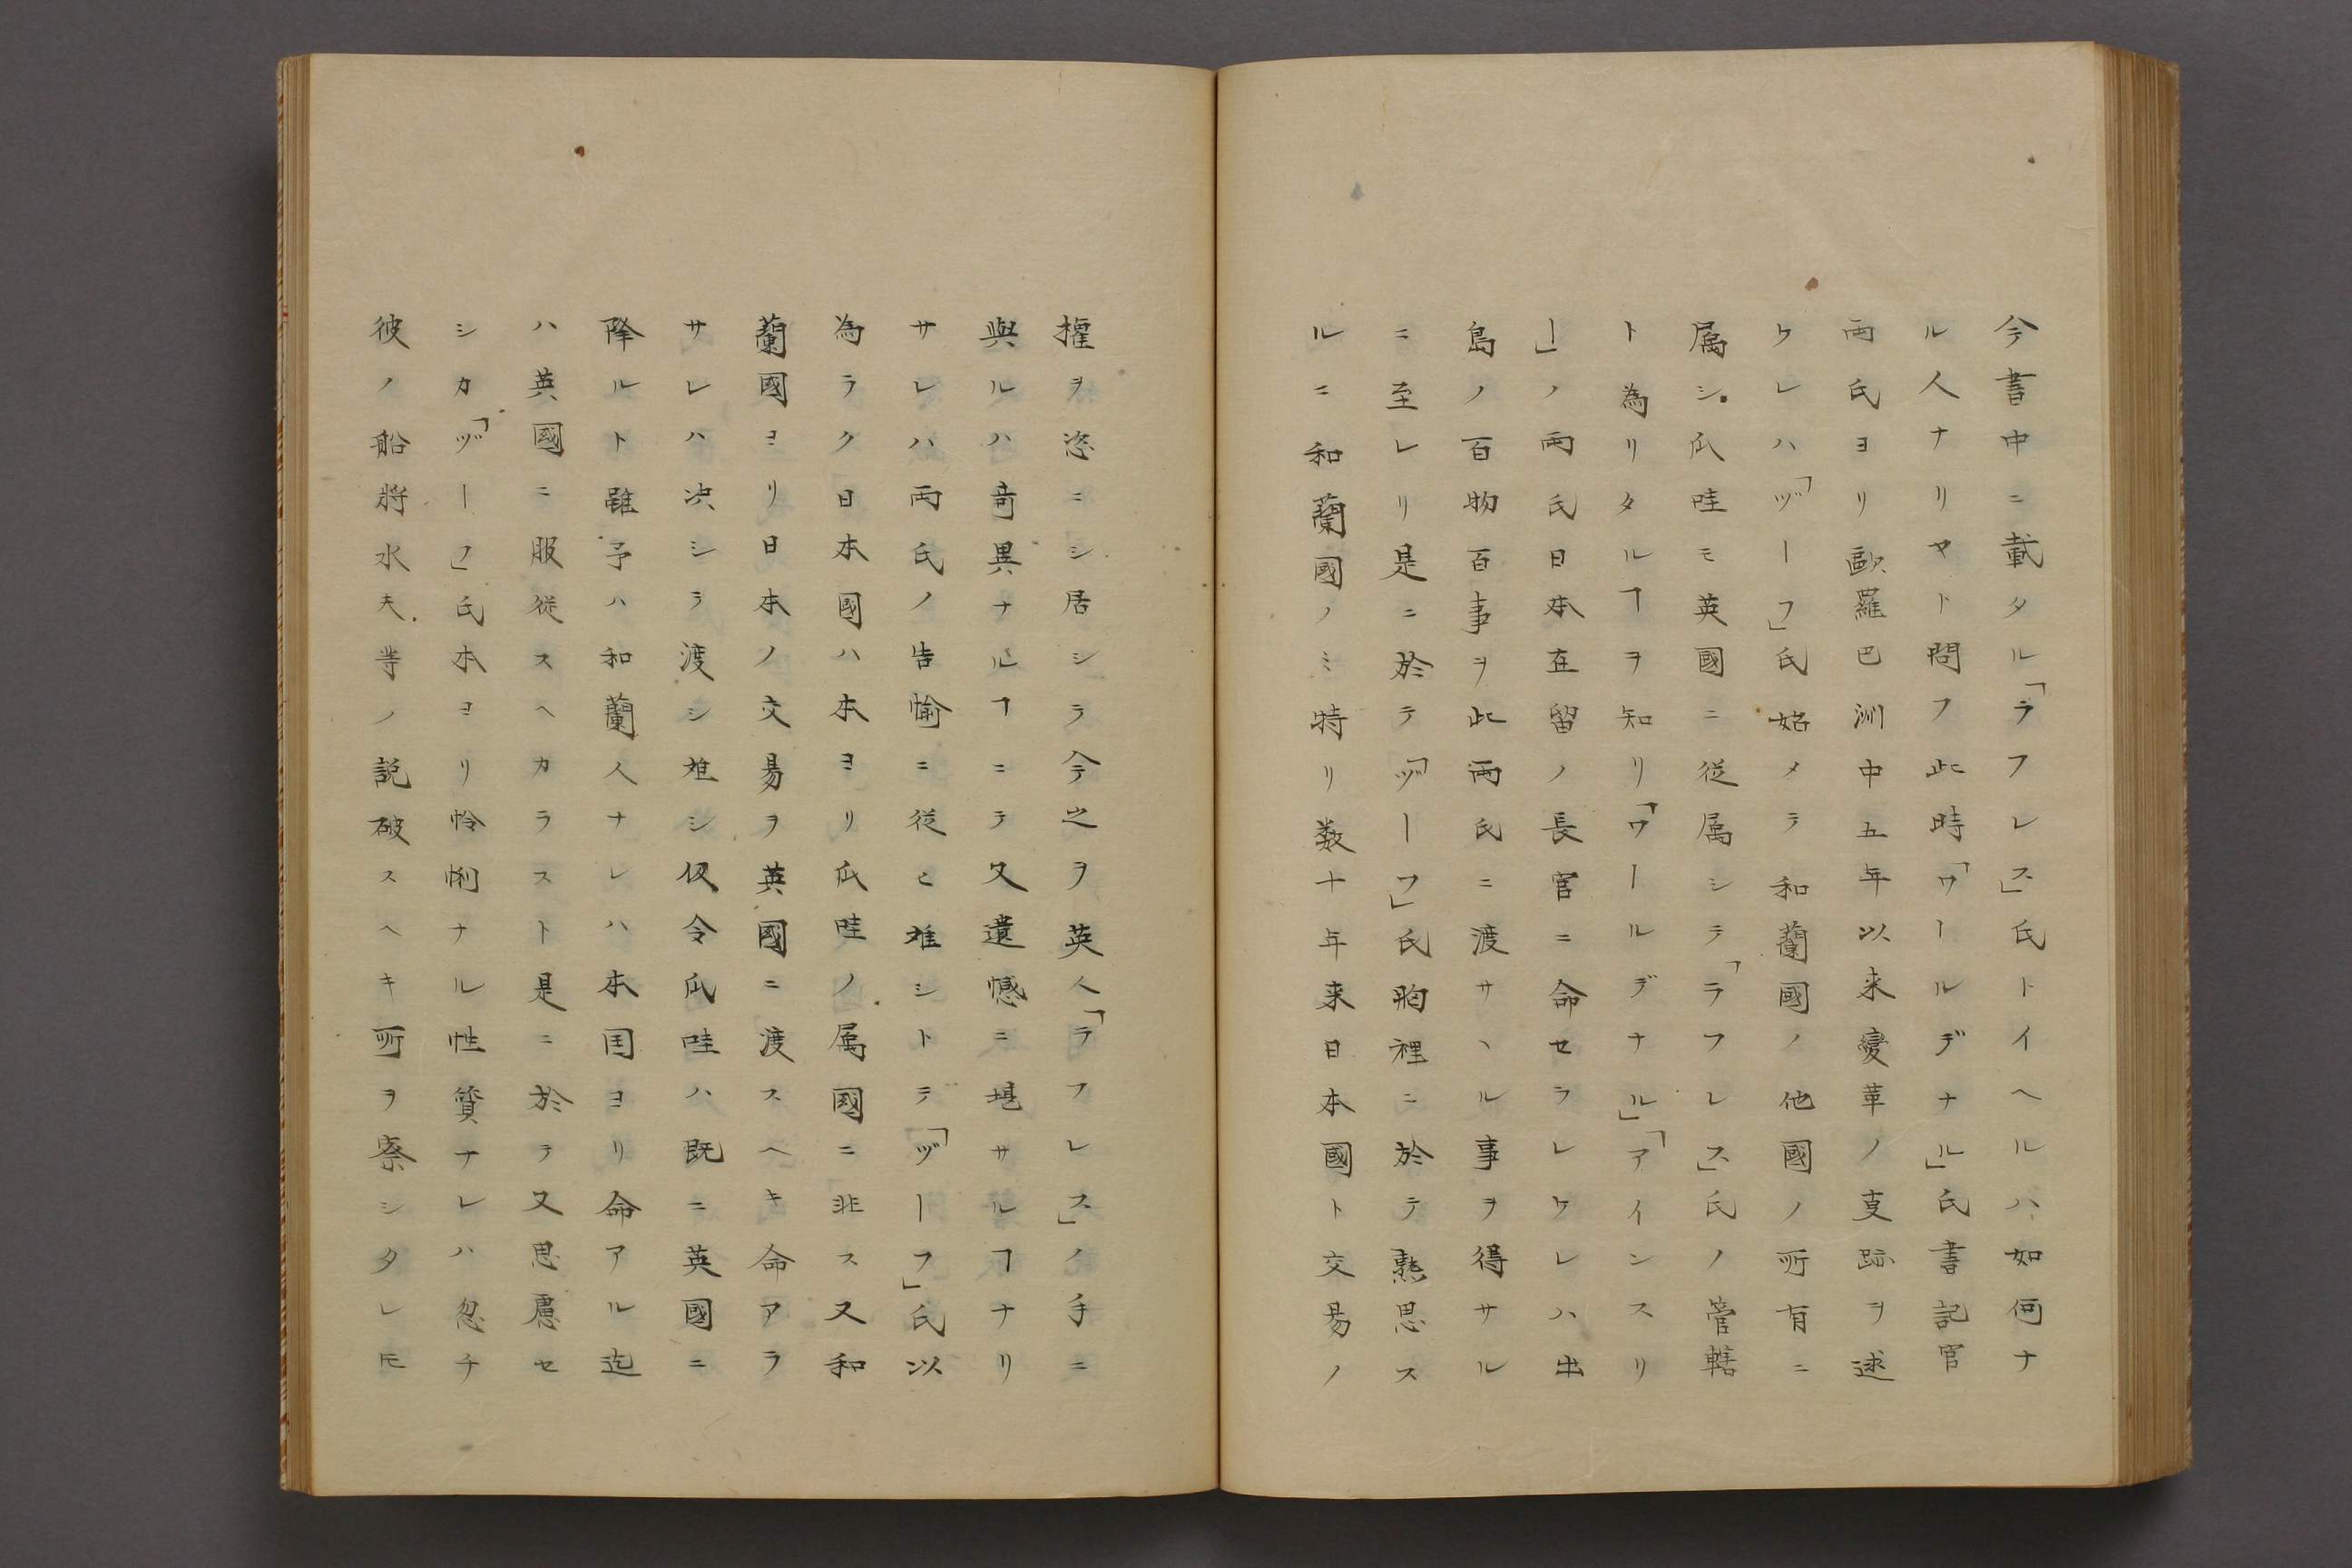 今書中ニ載タル「ラフレス」氏トイヘルハ如何ナ
ル人ナリヤト問フ此時「ワールデナル」氏書記官
両氏ヨリ歐羅巴洲中五年以来變革ノ支跡ヲ述
ケレハ「ヅーフ」氏始メテ和蘭國ノ他國ノ所有ニ
属シ瓜哇モ英國ニ從属シテ「ラフレス」氏ノ管轄
ト為リタルヿヲ知リ「ワールデナル」「アインスリ
ー」ノ両氏日本在留ノ長官ニ命セラレケレハ出
島ノ百物百事ヲ此両氏ニ渡サヽル事ヲ得サル
ニ至レリ是ニ於テ「ヅーフ」氏胸裡ニ於テ熟思ス
ルニ和蘭國ノミ特リ數十年来日本國ト交易ノ
權ヲ恣ニシ居シヲ今之ヲ英人「ラフレス」ノ手ニ
與ルハ奇異ナルヿニテ又遺憾ニ堪サルヿナリ
サレハ両氏ノ告愉ニ從ヒ難シトテ「ヅーフ」氏以
為ラク日本國ハ本ヨリ瓜哇ノ属國ニ非ス又和
蘭國ヨリ日本ノ交易ヲ英國ニ渡スヘキ命アラ
サレハ决シテ渡シ難シ仮令瓜哇ハ既ニ英國ニ
降ルト雖予ハ和蘭人ナレハ本国ヨリ命アル迄
ハ英國ニ服從スヘカラスト是ニ於テ又思慮セ
シカ「ヅーフ」氏本ヨリ怜悧ナル性質ナレハ忽チ
彼ノ船將水夫等ノ説破スヘキ所ヲ察シタレ𪜈